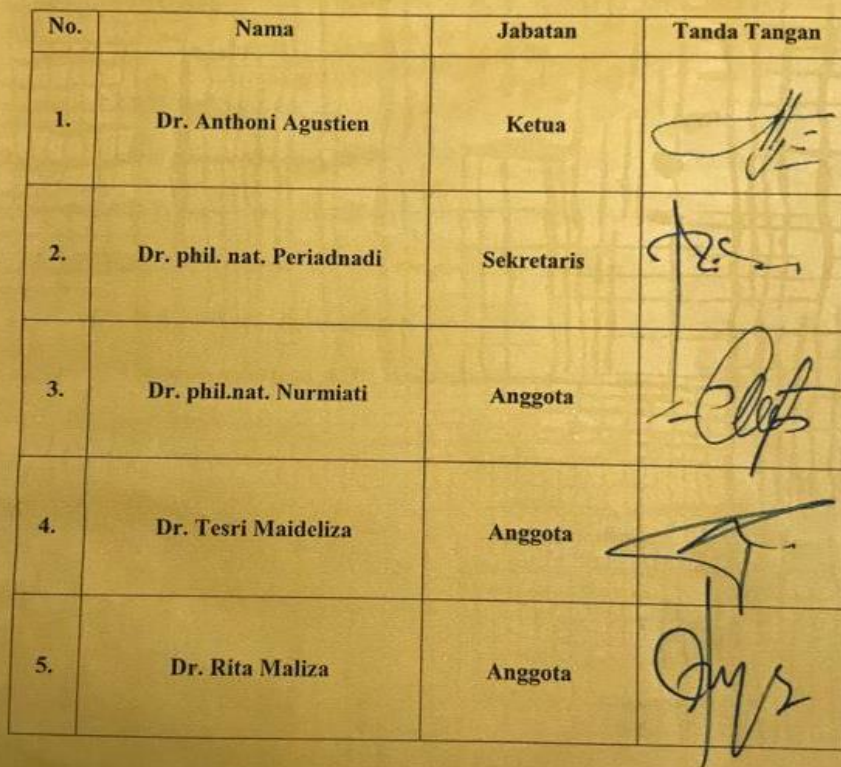 No. Nama Jabatan Tanda Tangan
1. Dr. Anthoni Agustien Ketua
2. Dr. phil. nat. Periadnadi Sekretaris
3. Dr. phil.nat. Nurmiati Anggota
4. Dr. Tesri Maideliza Anggota
5. Dr. Rita Maliza Anggota